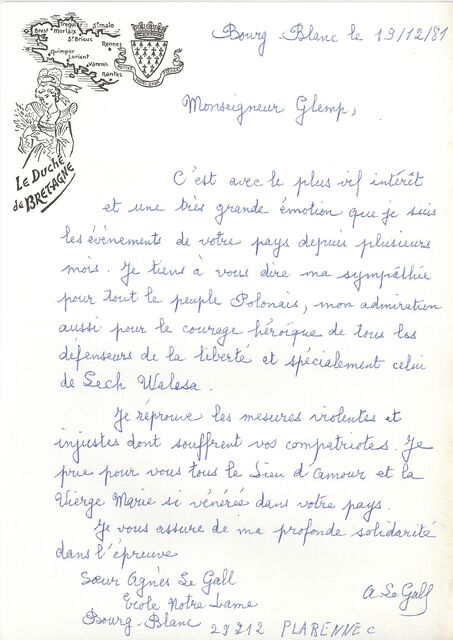 Tréguier
St-malo
Brest
Morlaix
St Brieuc
Rennes
quimper
Lorient
Vannes
nantes
Le Duché
de BRETAGNE
Bourg Blanc le 19/12/81
Monseigneur Glemp,
C'est avec le plus vif intérêt
et une très grande émotion que je suis
les évènements de votre pays depuis plusieurs
mois. Je tiens à vous dire ma sympathie
pour tout le peuple Polonais, mon admiration
aussi pour le courage héroïque de tous les
défenseurs de la liberté et spécialement celui
de Lech Walesa.
Je réprouve les mesures violentes et
injustes dont souffrent vos compatriotes. Je
prie pour vous tous le Dieu d'Amour et la
Vierge Marie si vénérée dans votre pays.
Je vous assure de ma profonde solidarité
dans l'épreuve
Sœur Agnès Le Gall
A. Le Gall
Ecole Notre Dame
Bourg-Blanc 29212 PLABENNEC